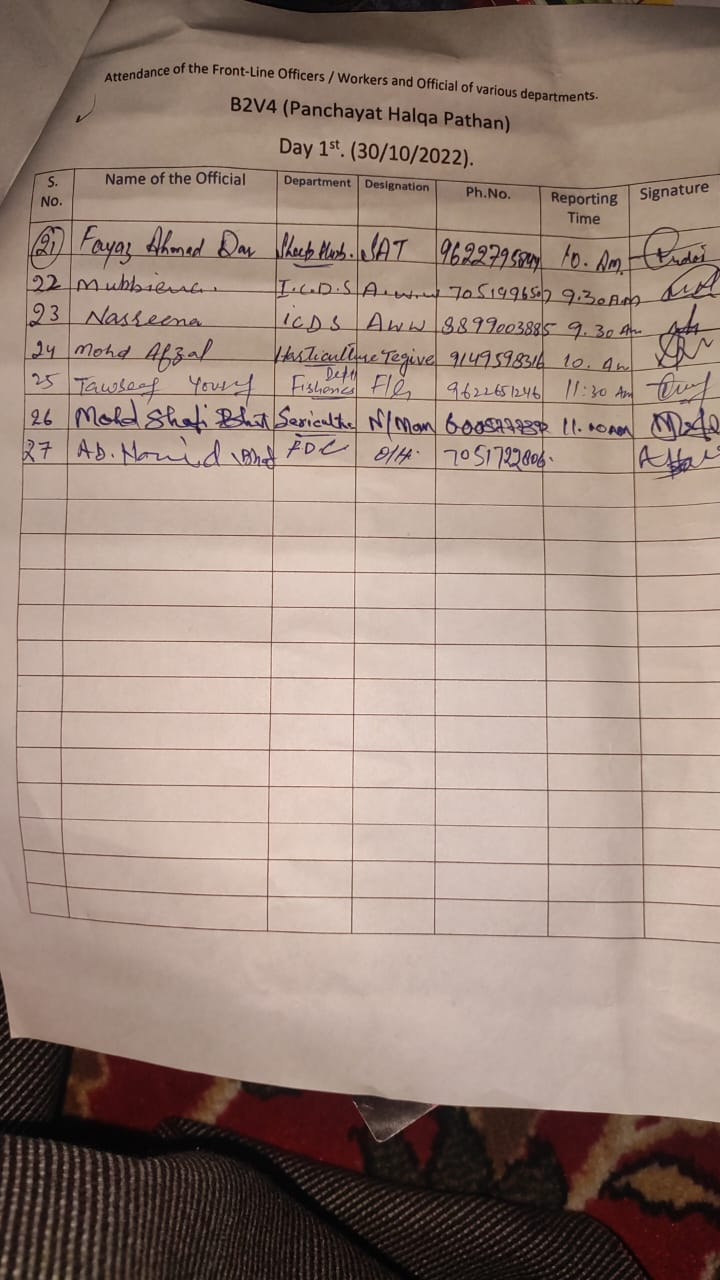 Attendance of the Front-Line Officers / Workers and Official of various departments.
B2V4 (Panchayat Halqa Pathan)
Day 1st. (30/10/2022).
S. No. Name of the Official Department Designation Ph.No. Reporting Time Signature
21 Fayaz Ahmad Dar Sheep Husb. SAT 10. Am.
22 Mubbiena. I.C.D.S A.w.w 9.30 Am
23 Nasseena ICDS AWW 8899003885 9.30 Am
24 Mohd Afzal 9149598316 10. Am
25 Tawseef Yousf Fisheries Deptt 9622651246 11:30 Am
26 Mohd Shafi Bhat 11.00 am
27 Ab. Hamid Bhat FDC 7051722806.